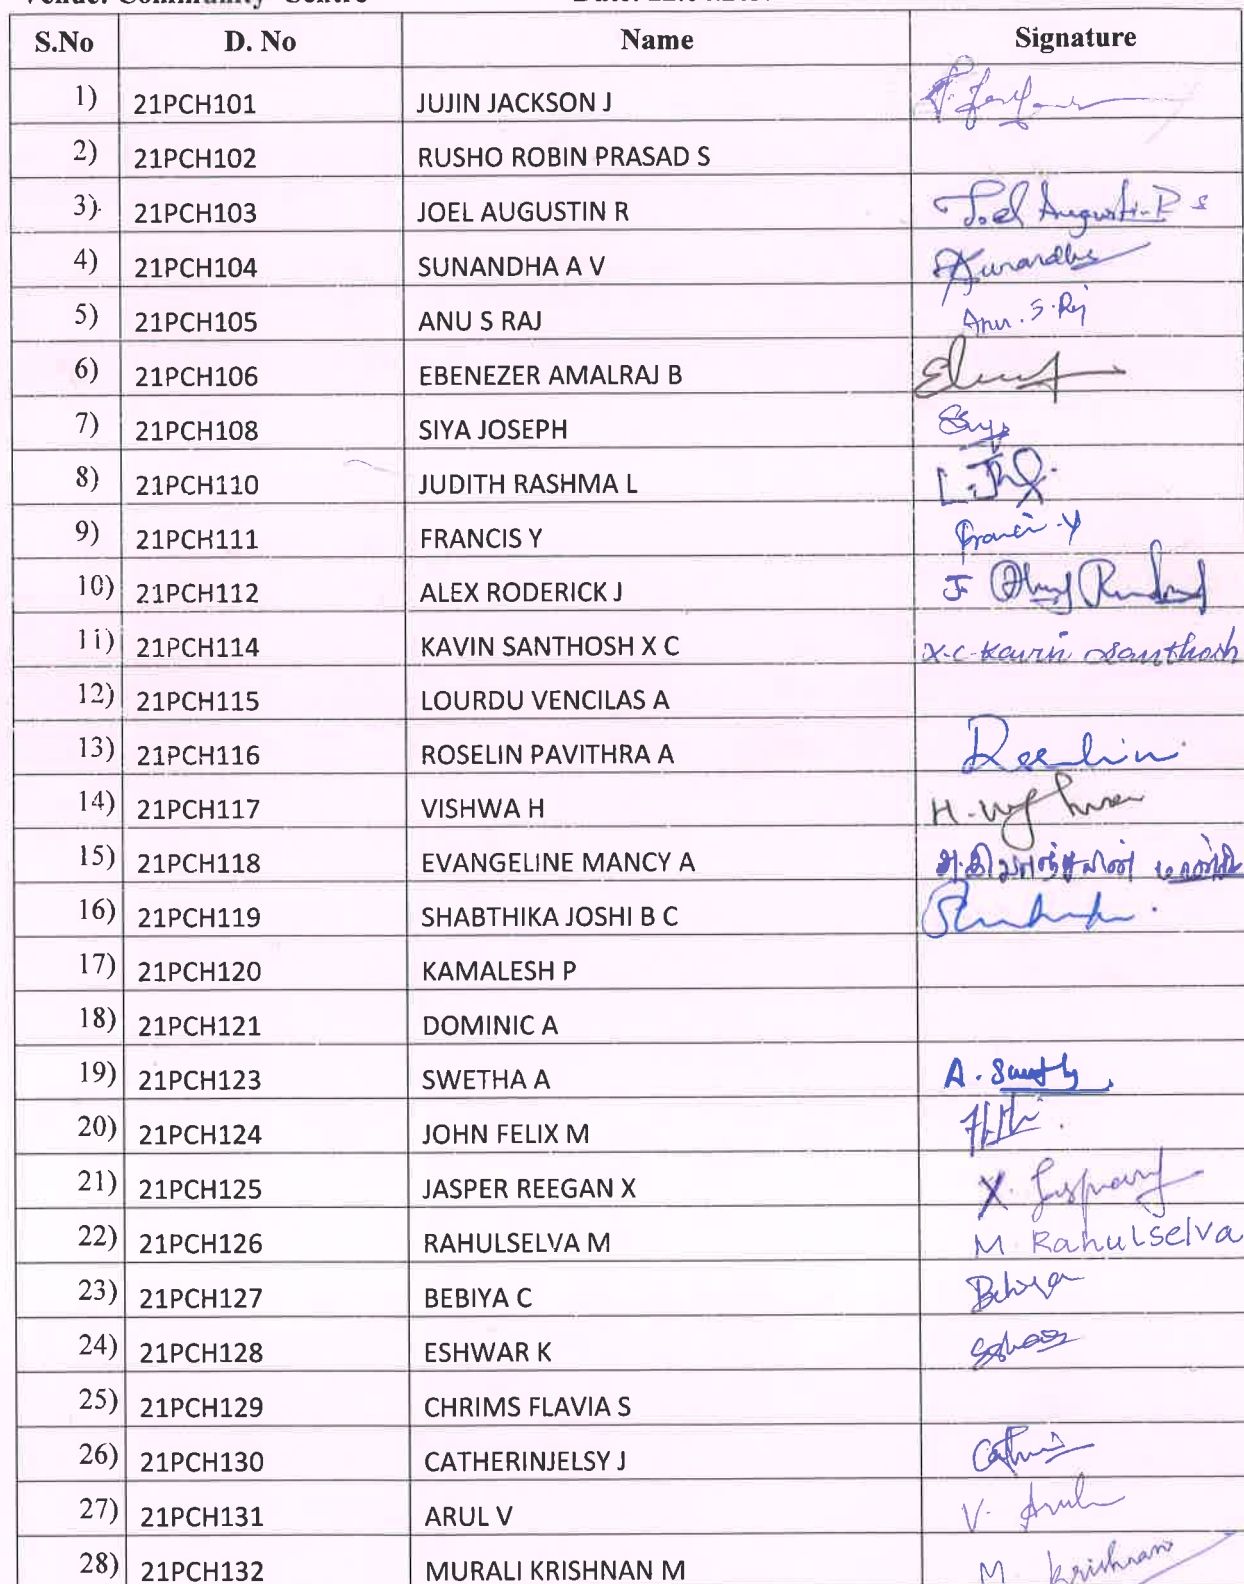 Venue: Community Centre
S.No D. No Name Signature
1) 21PCH101 JUJIN JACKSON J
2) 21PCH102 RUSHO ROBIN PRASAD S
3) 21PCH103 JOEL AUGUSTIN R Joel Augustin
4) 21PCH104 SUNANDHA A V Sunandha
5) 21PCH105 ANU S RAJ Anu. S. Raj
6) 21PCH106 EBENEZER AMALRAJ B
7) 21PCH108 SIYA JOSEPH Siya
8) 21PCH110 JUDITH RASHMA L
9) 21PCH111 FRANCIS Y Francis. Y
10) 21PCH112 ALEX RODERICK J J
11) 21PCH114 KAVIN SANTHOSH X C X.C. Kavin Santhosh
12) 21PCH115 LOURDU VENCILAS A
13) 21PCH116 ROSELIN PAVITHRA A
14) 21PCH117 VISHWA H
15) 21PCH118 EVANGELINE MANCY A
16) 21PCH119 SHABTHIKA JOSHI B C
17) 21PCH120 KAMALESH P
18) 21PCH121 DOMINIC A
19) 21PCH123 SWETHA A A.
20) 21PCH124 JOHN FELIX M
21) 21PCH125 JASPER REEGAN X X.
22) 21PCH126 RAHULSELVA M M Rahulselva
23) 21PCH127 BEBIYA C Bebiya
24) 21PCH128 ESHWAR K
25) 21PCH129 CHRIMS FLAVIA S
26) 21PCH130 CATHERINJELSY J
27) 21PCH131 ARUL V V. Arul
28) 21PCH132 MURALI KRISHNAN M M. Krishnan